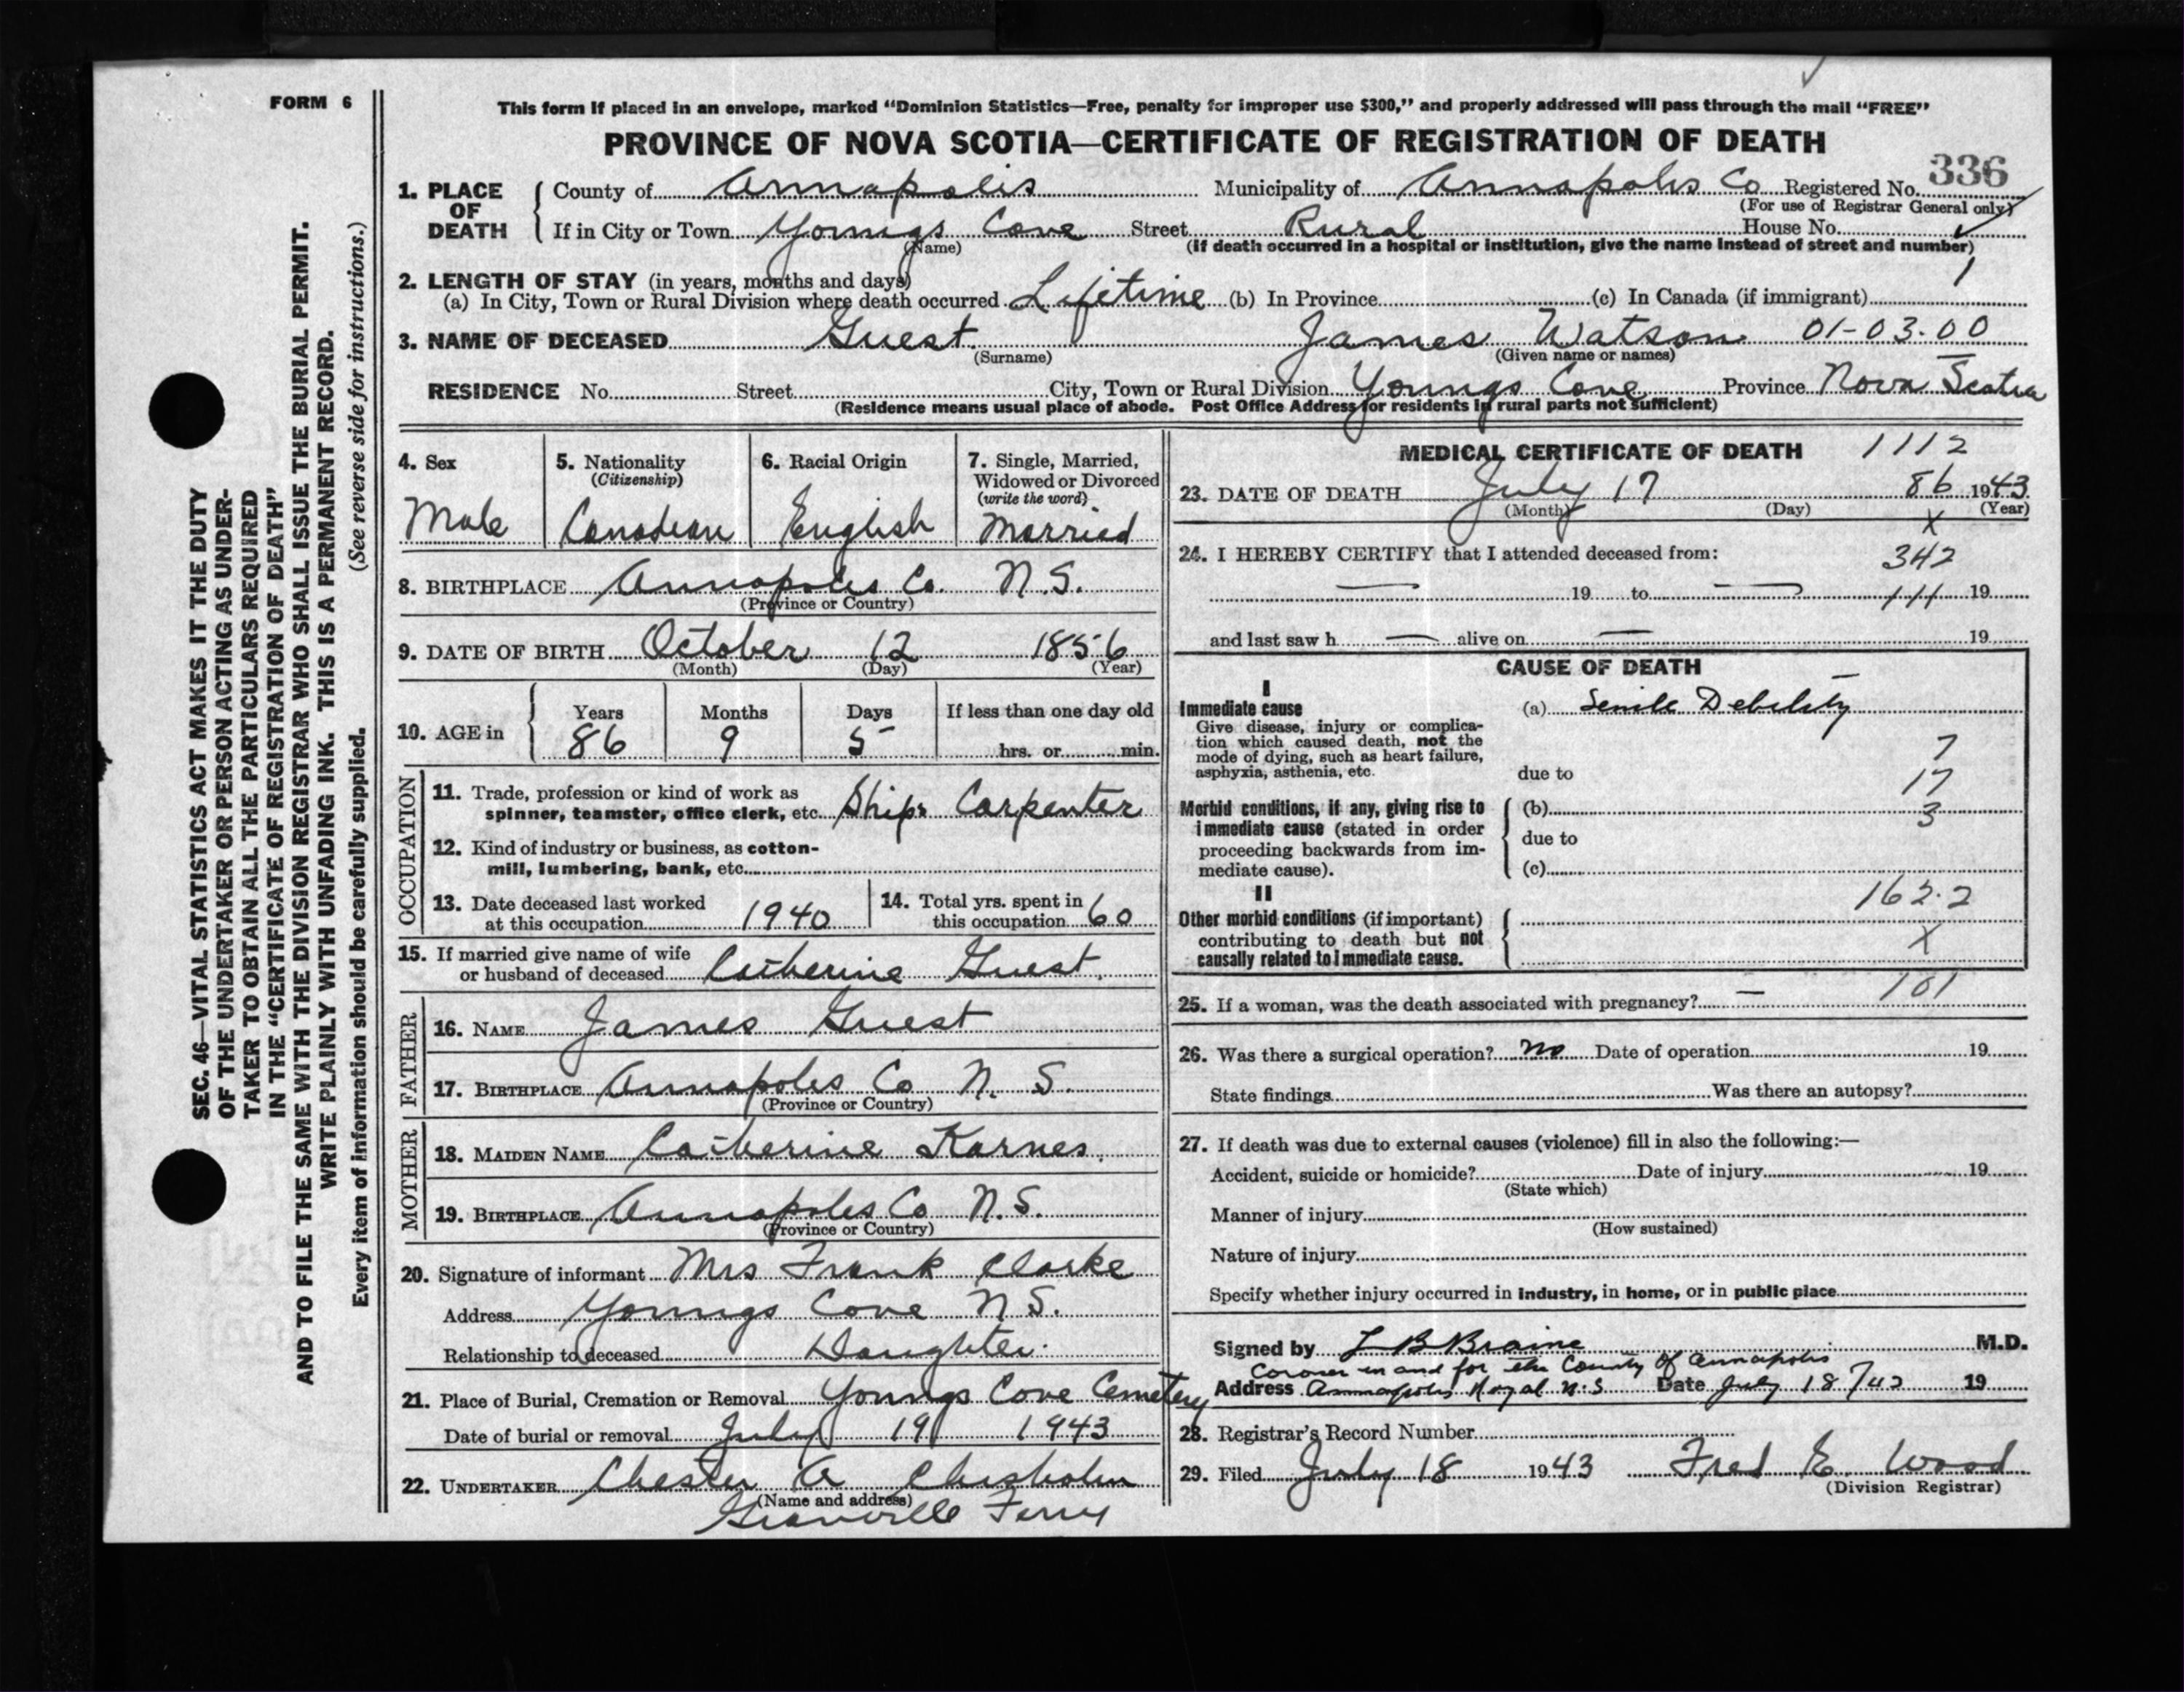 FORM 6
This form if placed in an envelope, marked "Dominion Statistics—Free, penalty for improper use $300," and properly addressed will pass through the mail "FREE"
PROVINCE OF NOVA SCOTIA—CERTIFICATE OF REGISTRATION OF DEATH
336
1. PLACE OF DEATH { County of Annapolis Municipality of Annapolis Co Registered No.
(For use of Registrar General only)
If in City or Town Youngs Cove Street Rural House No.
(Name) (If death occurred in a hospital or institution, give the name instead of street and number)
2. LENGTH OF STAY (in years, months and days) 1
(a) In City, Town or Rural Division where death occurred Lifetime (b) In Province (c) In Canada (if immigrant)
3. NAME OF DECEASED Guest. James Watson 01-03-00
(Surname) (Given name or names)
RESIDENCE No. Street City, Town or Rural Division Youngs Cove Province Nova Scotia
(Residence means usual place of abode. Post Office Address for residents in rural parts not sufficient)
4. Sex
Male
5. Nationality
(Citizenship)
Canadian
6. Racial Origin
English
7. Single, Married,
Widowed or Divorced
(write the word)
Married
8. BIRTHPLACE Annapolis Co. N.S.
(Province or Country)
9. DATE OF BIRTH October 12 1856
(Month) (Day) (Year)
10. AGE in { Years Months Days If less than one day old
86 9 5 hrs. or min.
OCCUPATION
11. Trade, profession or kind of work as
spinner, teamster, office clerk, etc. Ships Carpenter
12. Kind of industry or business, as cotton-
mill, lumbering, bank, etc.
13. Date deceased last worked
at this occupation 1940
14. Total yrs. spent in
this occupation 60
15. If married give name of wife
or husband of deceased Catherine Guest.
FATHER
16. NAME James Guest
17. BIRTHPLACE Annapolis Co N. S.
(Province or Country)
MOTHER
18. MAIDEN NAME Catherine Karnes.
19. BIRTHPLACE Annapolis Co N.S.
(Province or Country)
20. Signature of informant Mrs Frank Clarke
Address Youngs Cove N.S.
Relationship to deceased Daughter.
21. Place of Burial, Cremation or Removal Youngs Cove Cemetery
Date of burial or removal July 19 1943
22. UNDERTAKER Chester A Chisholm
(Name and address)
Granville Ferry
MEDICAL CERTIFICATE OF DEATH 1112
23. DATE OF DEATH July 17 86 1943
(Month) (Day) (Year)
X
24. I HEREBY CERTIFY that I attended deceased from: 342
— 19 to — 111 19
and last saw h — alive on — 19
CAUSE OF DEATH
I
Immediate cause (a) Senile Debility
Give disease, injury or complica-
tion which caused death, not the 7
mode of dying, such as heart failure,
asphyxia, asthenia, etc. due to 17
Morbid conditions, if any, giving rise to { (b) 3
immediate cause (stated in order
proceeding backwards from im- due to
mediate cause). (c)
II 162.2
Other morbid conditions (if important) {
contributing to death but not X
causally related to immediate cause.
25. If a woman, was the death associated with pregnancy? — 101
26. Was there a surgical operation? No Date of operation 19
State findings Was there an autopsy?
27. If death was due to external causes (violence) fill in also the following:—
Accident, suicide or homicide? Date of injury 19
(State which)
Manner of injury
(How sustained)
Nature of injury
Specify whether injury occurred in industry, in home, or in public place
Signed by L B Braine M.D.
Coroner in and for the County of Annapolis
Address Annapolis Royal N.S Date July 18/43 19
28. Registrar's Record Number
29. Filed July 18 1943 Fred E. Wood
(Division Registrar)
SEC. 46—VITAL STATISTICS ACT MAKES IT THE DUTY
OF THE UNDERTAKER OR PERSON ACTING AS UNDER-
TAKER TO OBTAIN ALL THE PARTICULARS REQUIRED
IN THE "CERTIFICATE OF REGISTRATION OF DEATH"
AND TO FILE THE SAME WITH THE DIVISION REGISTRAR WHO SHALL ISSUE THE BURIAL PERMIT.
WRITE PLAINLY WITH UNFADING INK. THIS IS A PERMANENT RECORD.
Every item of information should be carefully supplied. (See reverse side for instructions.)